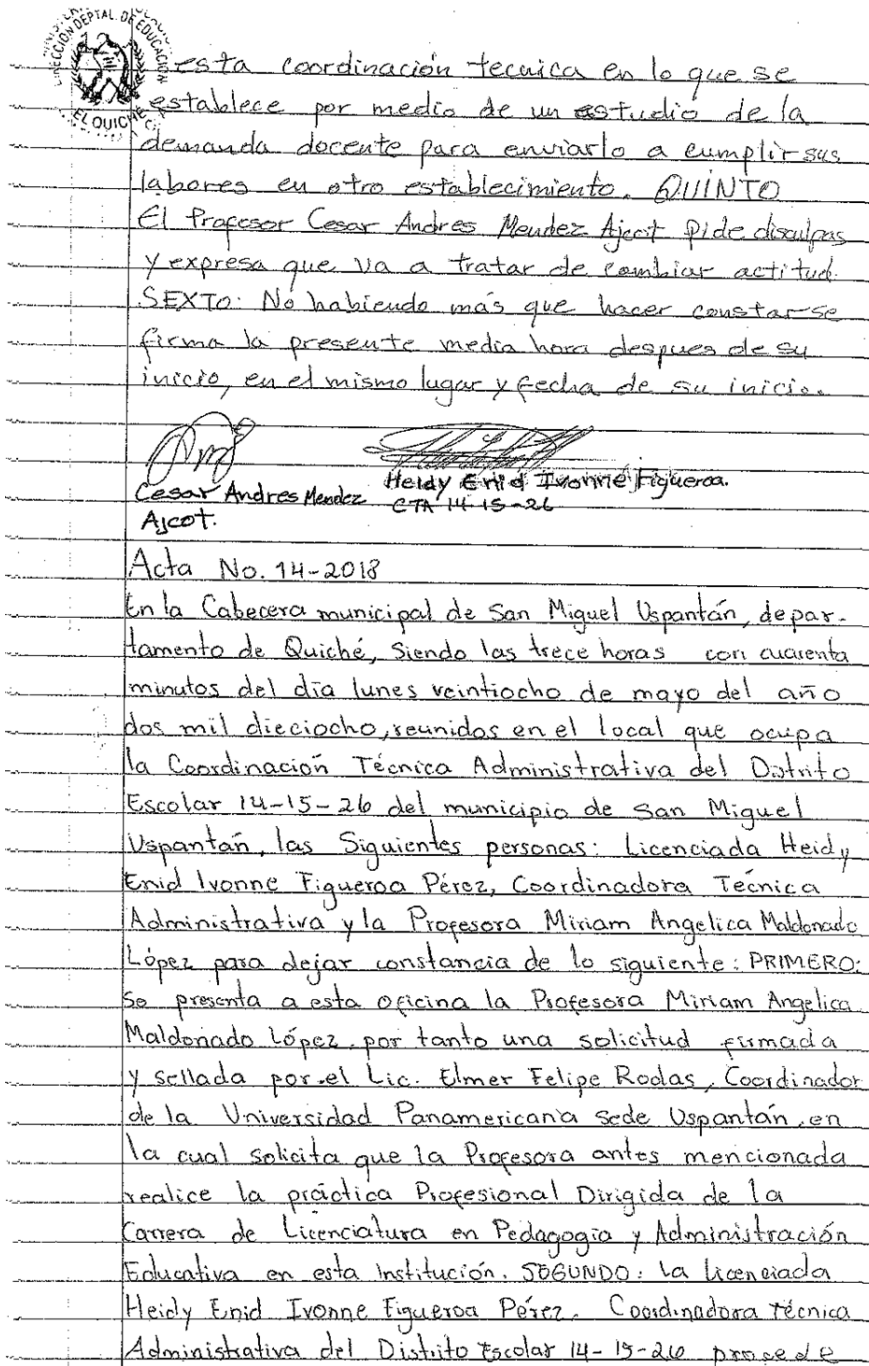 DIRECCIÓN DEPTAL. DE EDUCACIÓN
EL QUICHÉ
esta coordinación tecnica en lo que se
establece por medio de un estudio de la
demanda docente para enviarlo a cumplir sus
labores en otro establecimiento. QUINTO
El Profesor Cesar Andres Mendez Ajcot pide disculpas
y expresa que va a tratar de cambiar actitud.
SEXTO: No habiendo más que hacer constar se
firma la presente media hora despues de su
inicio, en el mismo lugar y fecha de su inicio.
Cesar Andres Mendez
Ajcot.
Heidy Enid Ivonne Figueroa.
CTA 14-15-26
Acta No. 14-2018
En la Cabecera municipal de San Miguel Uspantán, depar-
tamento de Quiché, Siendo las trece horas con cuarenta
minutos del día lunes veintiocho de mayo del año
dos mil dieciocho, reunidos en el local que ocupa
la Coordinación Técnica Administrativa del Distrito
Escolar 14-15-26 del municipio de San Miguel
Uspantán, las Siguientes personas: Licenciada Heidy
Enid Ivonne Figueroa Pérez, Coordinadora Técnica
Administrativa y la Profesora Miriam Angelica Maldonado
López para dejar constancia de lo siguiente: PRIMERO:
Se presenta a esta oficina la Profesora Miriam Angelica
Maldonado López, por tanto una solicitud firmada
y sellada por el Lic. Elmer Felipe Rodas, Coordinador
de la Universidad Panamericana sede Uspantán, en
la cual solicita que la Profesora antes mencionada
realice la práctica Profesional Dirigida de la
Carrera de Licenciatura en Pedagogía y Administración
Educativa en esta Institución. SEGUNDO: La licenciada
Heidy Enid Ivonne Figueroa Pérez. Coordinadora Técnica
Administrativa del Distrito Escolar 14-15-26 procede